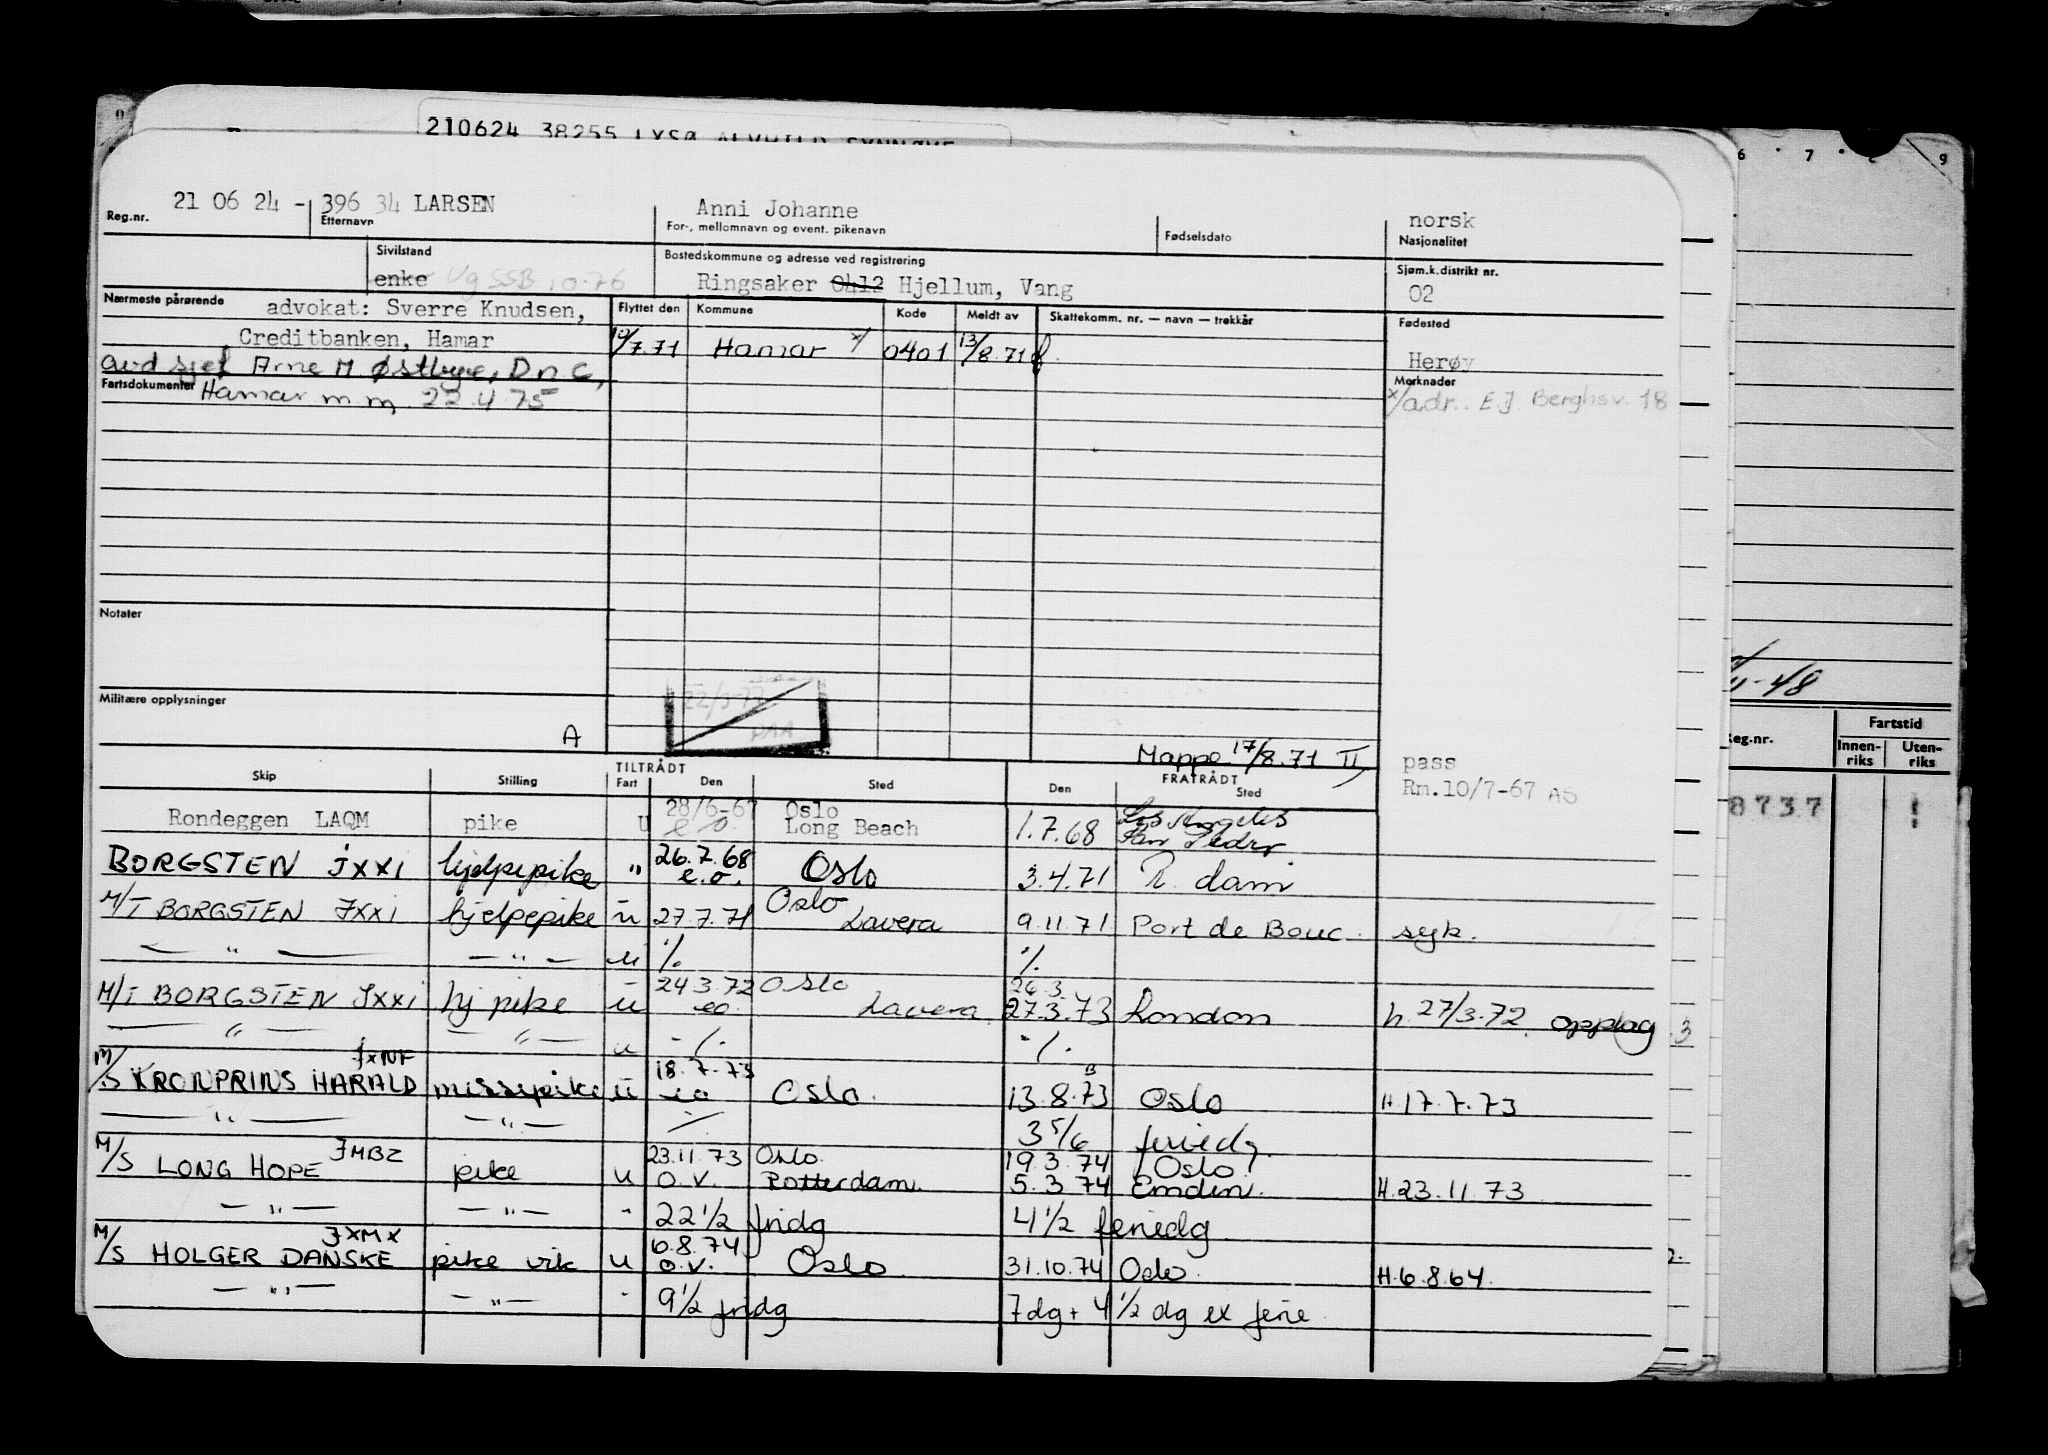 210624 38255 LYSØ ALVHILD SYNNØVE
6 7 8 9
Reg.nr. 21 06 24 - 396 34 LARSEN Anni Johanne norsk
Etternavn For-, mellomnavn og event. pikenavn Fødselsdato Nasjonalitet
Sivilstand Bostedskommune og adresse ved registrering Sjøm.k.distrikt nr.
enke Ug SSB 10.76 Ringsaker 0412 Hjellum, Vang 02
Nærmeste pårørende advokat: Sverre Knudsen, Flyttet den Kommune Kode Meldt av Skattekomm. nr. — navn — trekkår Fødested
Creditbanken, Hamar 10/7.71 Hamar x/ 0401 13/8.71 Herøy
avd sjef Arne M Østbye, D n C,
Fartsdokumenter Hamar m.m. 22.4.75 Merknader
x/adr.. E.J. Berghsv. 18
Notater
Militære opplysninger
A
Mappe 17/8.71 II
pass
Rm.10/7-67 AS
11-48
Reg.nr. Fartstid
Innenriks Utenriks
8737
TILTRÅDT FRATRÅDT
Skip Stilling Fart Den Sted Den Sted
28/6-67 Oslo Los Angeles
Rondeggen LAQM pike U e.o. Long Beach 1.7.68 San Pedro.
BORGSTEN JXXI hjelpepike " 26.7.68 e.o. Oslo 3.4.71 R. dam
M/T BORGSTEN JXXI hjelpepike u 27.7.71 Oslo Lavera 9.11.71 Port de Bouc. syk.
— " — — " — u ./. ./.
24.3.72 Oslo 26.3.
M/T BORGSTEN JXXI hj pike u eo. Lavera 27.3.73 London h. 27/3.72. opplag 3
— " — — " — u - /. - /.
JXNF 18.7.73
M/S KRONPRINS HARALD messepike u eo Oslo. 13.8.73 Oslo H.17.7.73
— " — — " — 3 5/6 feriedg.
JMBZ 23.11.73 Oslo. 19.3.74 Oslo
M/S LONG HOPE pike u o.v. Rotterdam. 5.3.74 Emden. H.23.11.73
— " — — " — - 22 1/2 fridg 4 1/2 feriedg
JXMX 6.8.74
M/S HOLGER DANSKE pike vik u o.v. Oslo 31.10.74 Oslo. H.6.8.64.
— " — — " — - 9 1/2 fridg 7 dg + 4 1/2 dg ex ferie